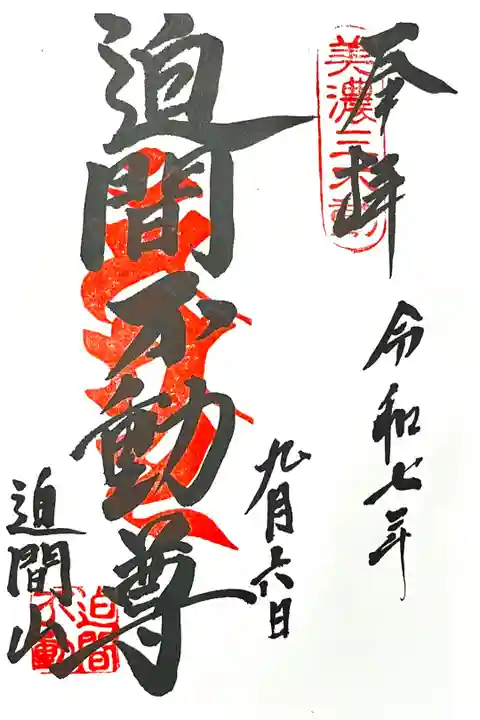 奉拝
美濃三不動
令和七年
九月六日
迫間不動尊
迫間山
迫間
不動